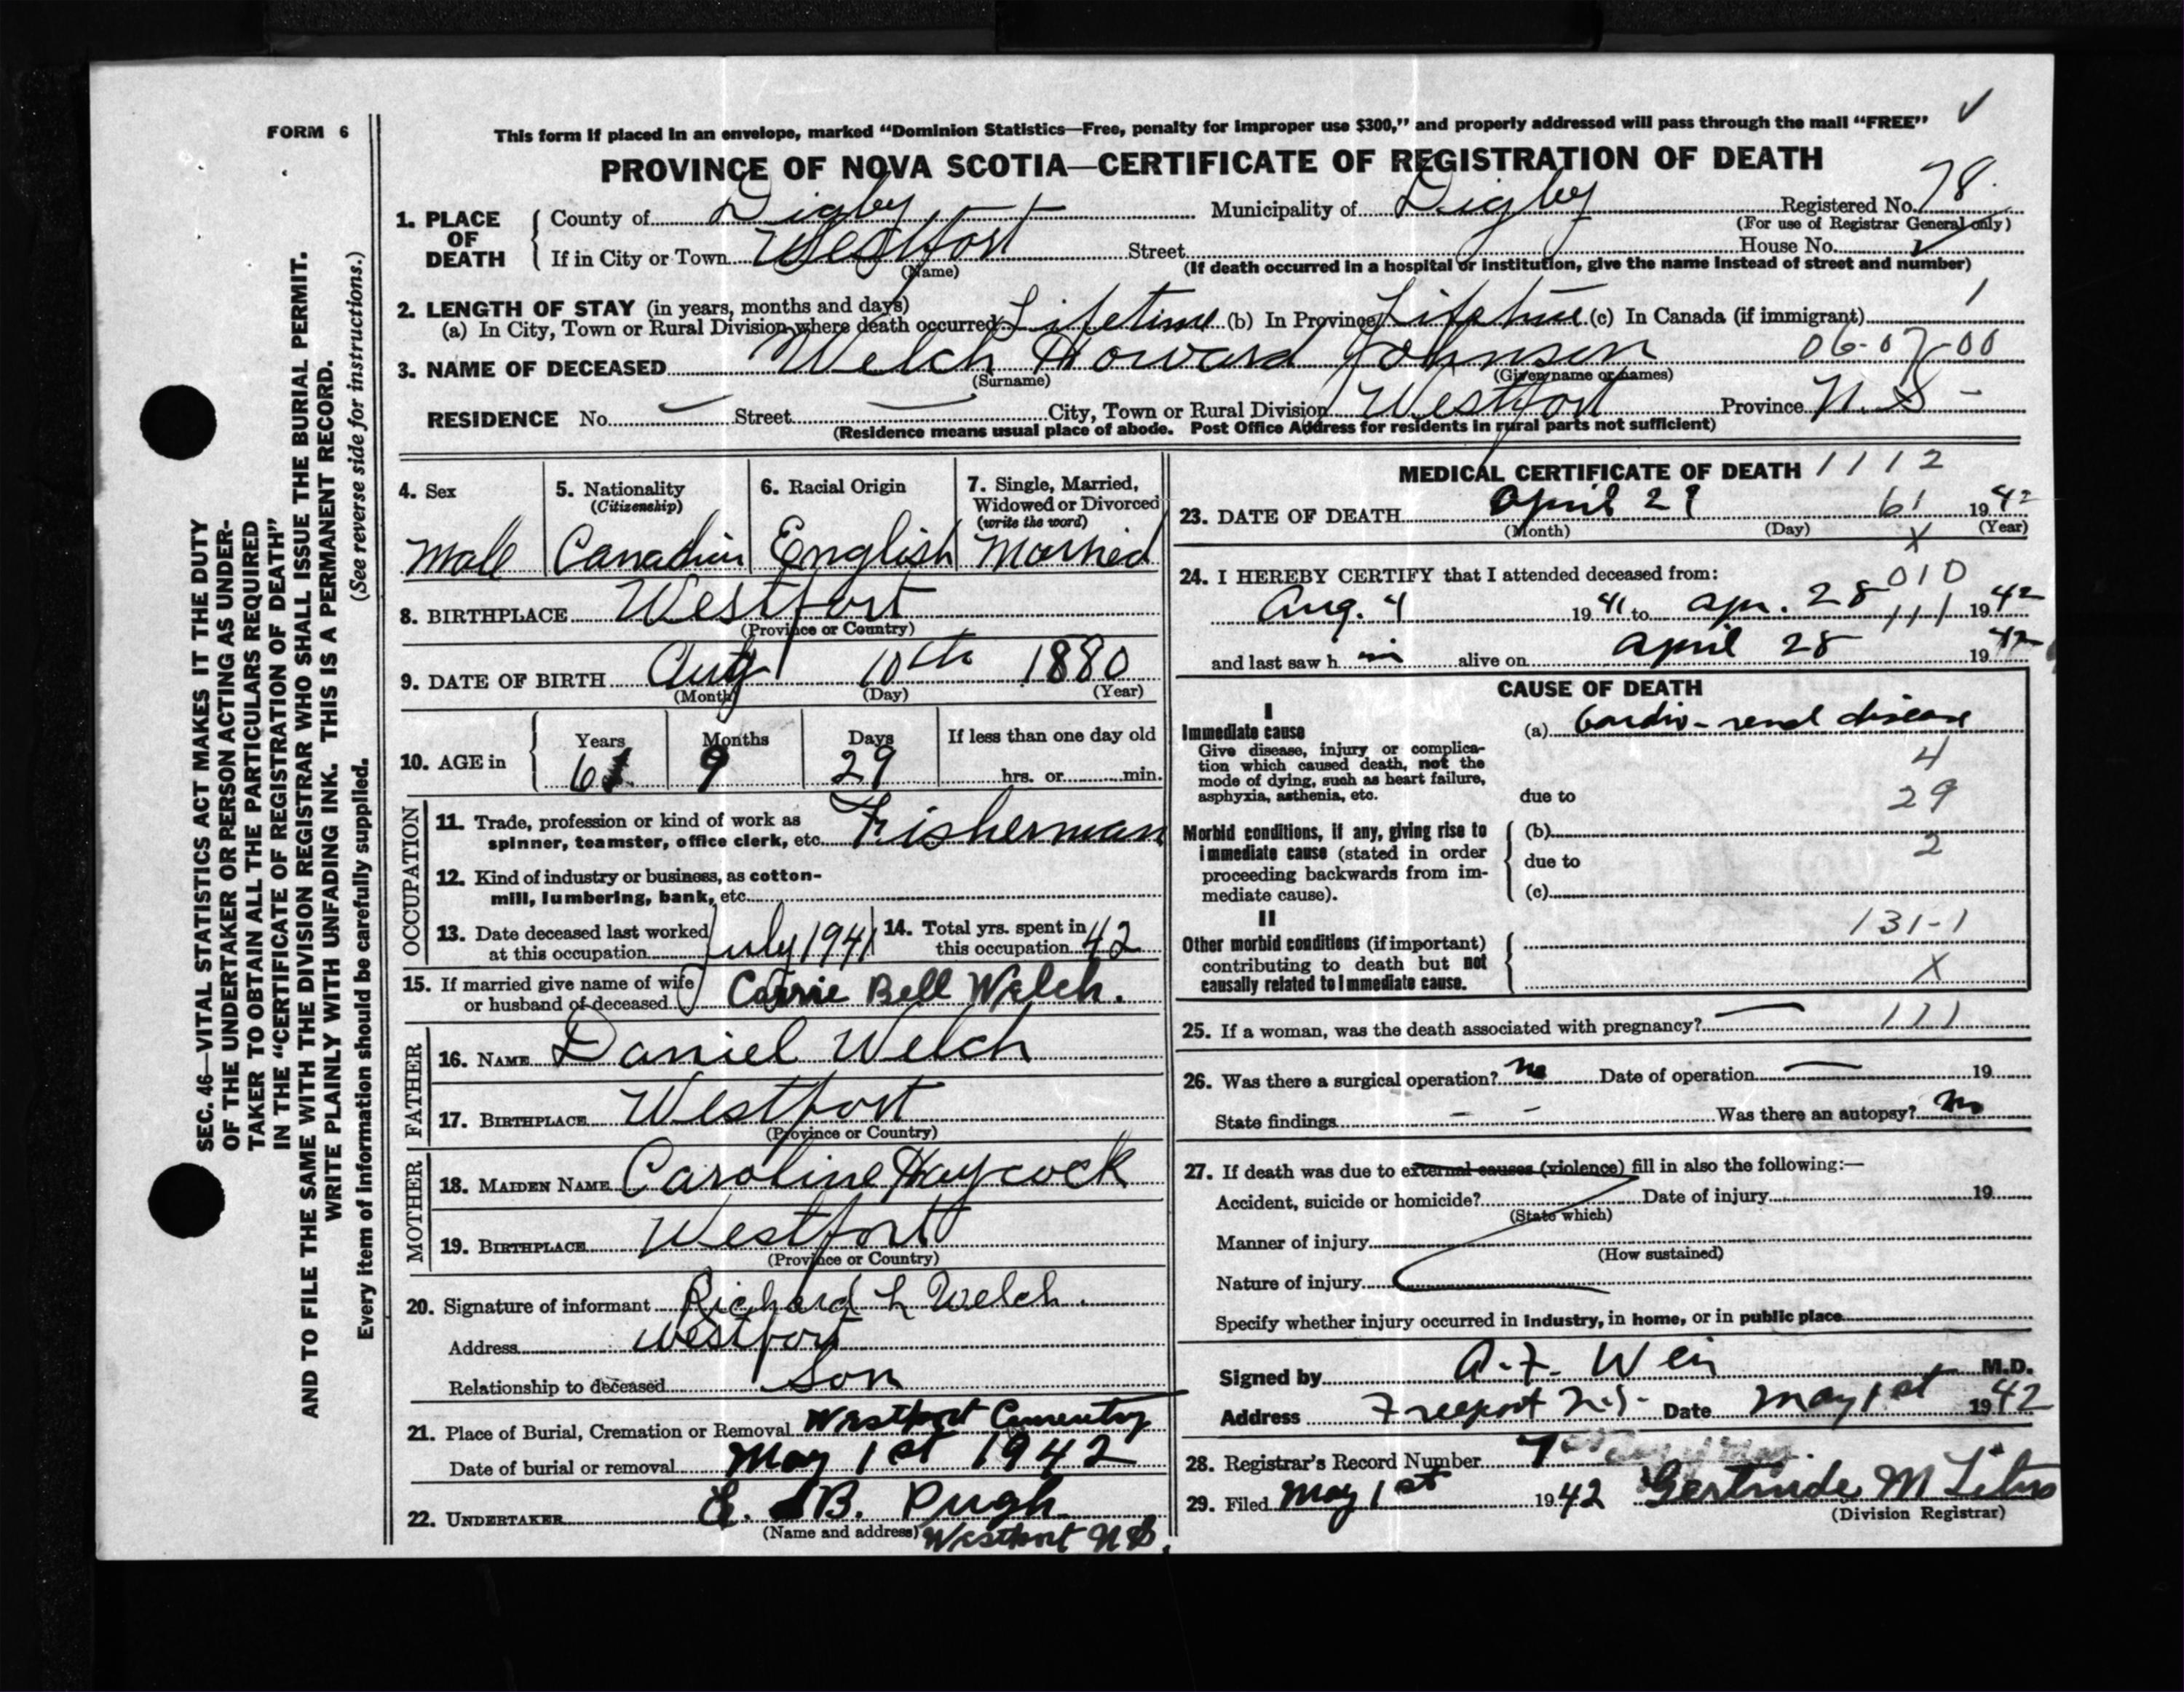 FORM 6
SEC. 46—VITAL STATISTICS ACT MAKES IT THE DUTY
OF THE UNDERTAKER OR PERSON ACTING AS UNDER-
TAKER TO OBTAIN ALL THE PARTICULARS REQUIRED
IN THE "CERTIFICATE OF REGISTRATION OF DEATH"
AND TO FILE THE SAME WITH THE DIVISION REGISTRAR WHO SHALL ISSUE THE BURIAL PERMIT.
WRITE PLAINLY WITH UNFADING INK. THIS IS A PERMANENT RECORD.
Every item of information should be carefully supplied. (See reverse side for instructions.)
This form if placed in an envelope, marked "Dominion Statistics—Free, penalty for improper use $300," and properly addressed will pass through the mail "FREE"
PROVINCE OF NOVA SCOTIA—CERTIFICATE OF REGISTRATION OF DEATH
1. PLACE OF DEATH County of Digby Municipality of Digby Registered No. 78
(For use of Registrar General only)
If in City or Town Westport Street House No.
(Name) (If death occurred in a hospital or institution, give the name instead of street and number)
2. LENGTH OF STAY (in years, months and days) 1
(a) In City, Town or Rural Division where death occurred Lifetime (b) In Province Lifetime (c) In Canada (if immigrant)
3. NAME OF DECEASED Welch Howard Johnson 06-07-00
(Surname) (Given name or names)
RESIDENCE No. — Street — City, Town or Rural Division Westport Province N.S -
(Residence means usual place of abode. Post Office Address for residents in rural parts not sufficient)
4. Sex 5. Nationality 6. Racial Origin 7. Single, Married,
(Citizenship) Widowed or Divorced
(write the word)
Male Canadian English Married
8. BIRTHPLACE Westport
(Province or Country)
9. DATE OF BIRTH 10th 1880
(Month) (Day) (Year)
10. AGE in Years Months Days If less than one day old
61 9 29 hrs. or min.
OCCUPATION
11. Trade, profession or kind of work as
spinner, teamster, office clerk, etc. Fisherman
12. Kind of industry or business, as cotton-
mill, lumbering, bank, etc.
13. Date deceased last worked
at this occupation July 1941
14. Total yrs. spent in
this occupation 42
15. If married give name of wife
or husband of deceased Carrie Bell Welch.
FATHER
16. NAME Daniel Welch
17. BIRTHPLACE Westport
(Province or Country)
MOTHER
18. MAIDEN NAME Caroline Haycock
19. BIRTHPLACE Westport
(Province or Country)
20. Signature of informant Richard L Welch.
Address Westport
Relationship to deceased Son
21. Place of Burial, Cremation or Removal Westport
Date of burial or removal May 1st 1942
22. UNDERTAKER E. B. Pugh
(Name and address) Westport N.S.
MEDICAL CERTIFICATE OF DEATH 1112
23. DATE OF DEATH April 29 61 1942
(Month) (Day) (Year)
X
24. I HEREBY CERTIFY that I attended deceased from: 010
Aug. 4 1941 to Apr. 28 111 1942
and last saw h im alive on April 28 1942
CAUSE OF DEATH
I
Immediate cause (a) Cardio-renal disease
Give disease, injury or complica-
tion which caused death, not the
mode of dying, such as heart failure,
asphyxia, asthenia, etc.
4
due to 29
Morbid conditions, if any, giving rise to
immediate cause (stated in order
proceeding backwards from im-
mediate cause).
(b)
2
due to
(c)
II
131-1
Other morbid conditions (if important)
contributing to death but not
causally related to immediate cause.
X
25. If a woman, was the death associated with pregnancy? — 111
26. Was there a surgical operation? No Date of operation — 19
State findings — — Was there an autopsy? No
27. If death was due to external causes (violence) fill in also the following:—
Accident, suicide or homicide? Date of injury 19
(State which)
Manner of injury
(How sustained)
Nature of injury
Specify whether injury occurred in industry, in home, or in public place
Signed by A. F. Weir M.D.
Address Freeport N.S. Date May 1st 1942
28. Registrar's Record Number 7
29. Filed May 1st 1942 Gertrude M Titus
(Division Registrar)